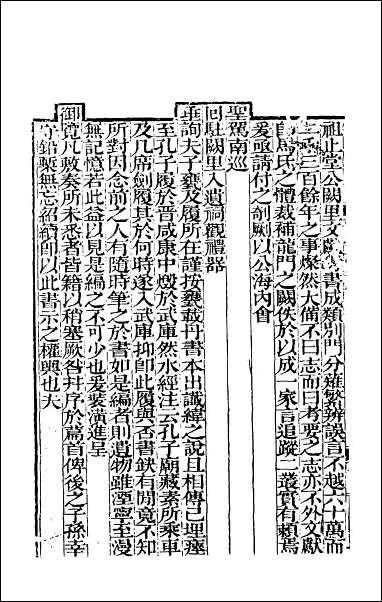 祖止堂公闕里文獻考書成類別門分雖繁辨誤言不越六十萬而
三千三百餘年之事燦然大備不曰志而曰考要之志亦不外文獻
自馬氏之體裁補龍門之闕佚於以成一家言追蹤二叢實有賴焉
爰亟請付之剞劂以公海內會
聖駕南巡
回駐闕里入遺祠觀禮器
垂詢夫子甕及履所在謹按甕載丹書本出讖緯之說且相傳已埋瘞
至孔子履於晉咸康中燬於武庫然水經注云孔子廟藏素所乘車
及几席劍履其於何時遂入武庫抑卽此履與否書缺有閒竟不知
所對因念前之人有隨時筆之於書如是編者則遺物雖湮寧至漫
無記憶若此益以見是編之不可少也爰裝潢進呈
御覽凡敕奏所未悉者皆籍以稍塞厥咎幷序於篇首俾後之子孫幸
守鉛槧無忘紹續卽以此書示之權輿也夫